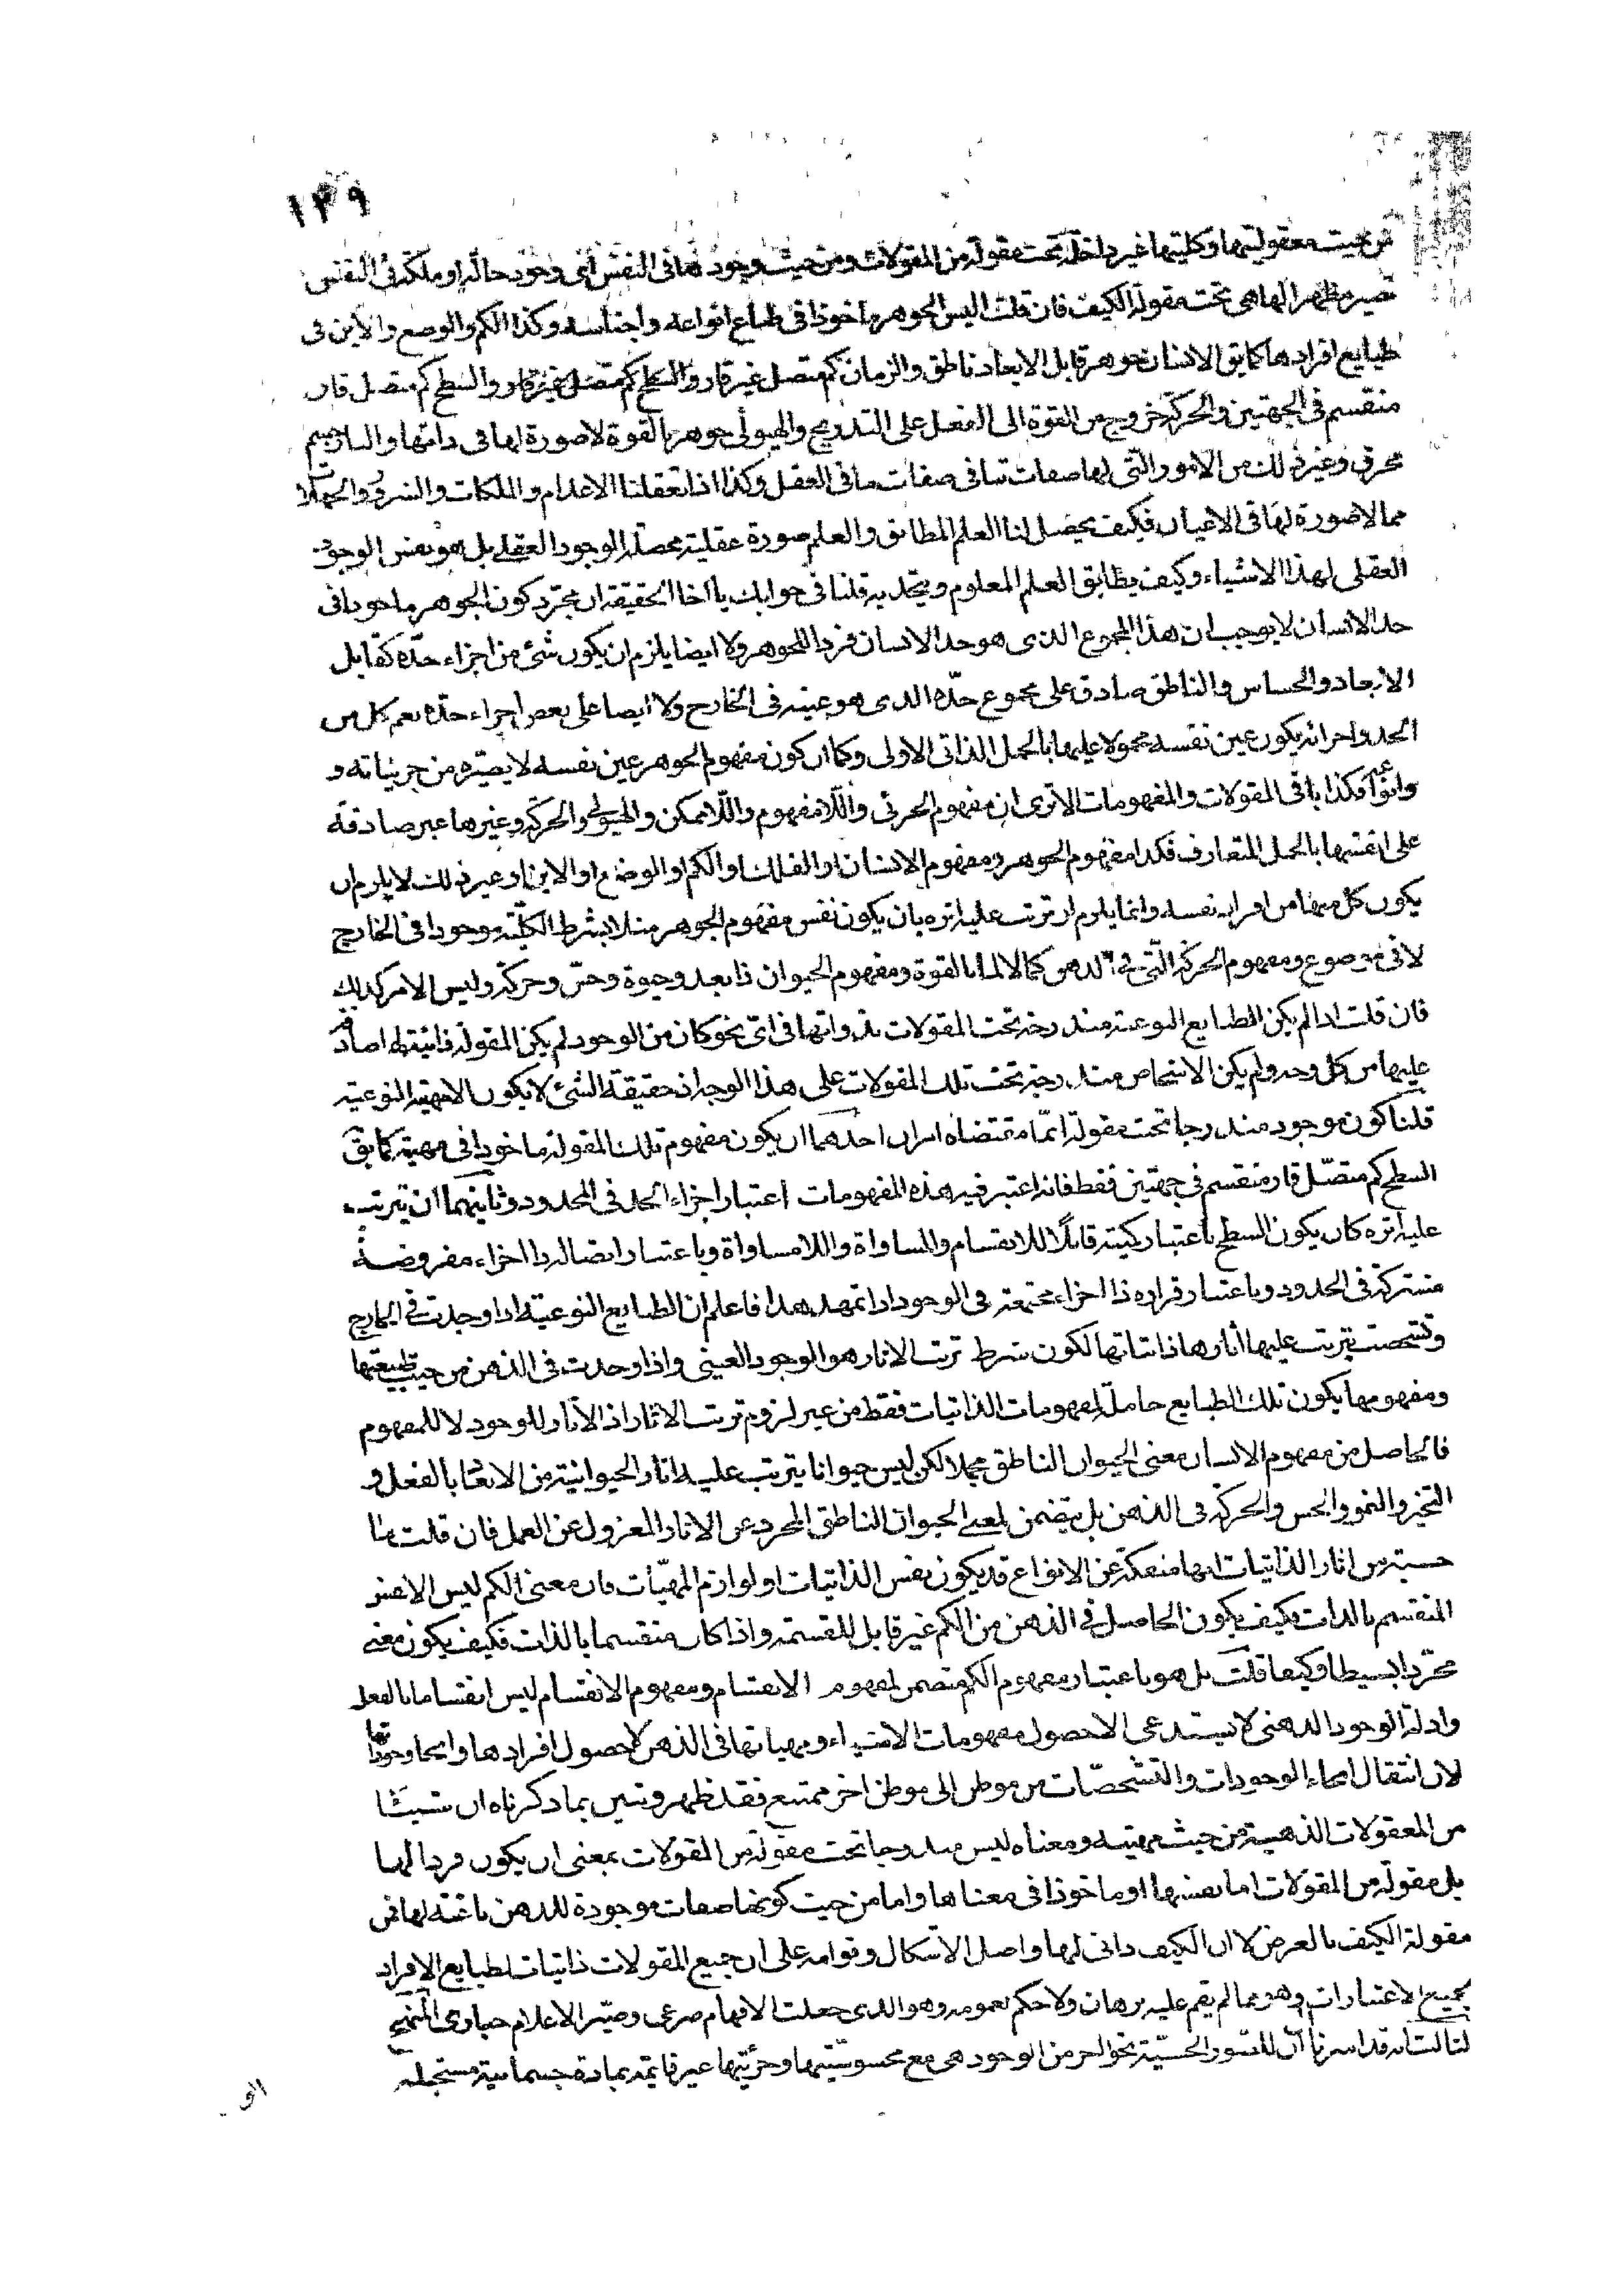 ١٢٩
من حيث معقوليتها وكليتها غير داخلة تحت مقولة من المقولات ومن حيث وجودها في النفس أي وجود حالة او ملكة في النفس
تصير مظهرا لها هي تحت مقولة الكيف فان قلت اليس الجوهر مأخوذا في طبايع انواعه واجناسه وكذا الكم والوضع والأين في
طبايع افرادها كما يق الانسان جوهر قابل الابعاد ناطق والزمان كم متصل غير قار والسطح كم متصل غير قار والسطح كم متصل قار
منقسم في الجهتين والحركة خروج من القوة الى الفعل على التدريج والهيولى جوهر بالقوة لا صورة لها في ذاتها والنار جسم
محرق وغير ذلك من الامور التي لها صفات تنافي صفات ما في العقل وكذا اذا تعقلنا الاعدام والملكات والشرور والجهلات
مما لا صورة لها في الاعيان فكيف يحصل لنا العلم المطابق والعلم صورة عقلية محصلة الوجود العقلي بل هو نفس الوجود
العقلي لهذا الاشياء وكيف يطابق العلم المعلوم ويتحد به قلنا في جوابك يا اخا الحقيقة ان مجرد كون الجوهر ماخوذا في
حد الانسان لا يوجب ان هذا المجموع الذي هو حد الانسان فردا للجوهر ولا ايضا يلزم ان يكون شئ من اجزاء حده كقابل
الابعاد والحساس والناطق صادق على مجموع حده الذي هو عينه في الخارج ولا ايضا على بعض اجزاء حده نعم كل من
الحد واجزائه يكون عين نفسه محمولا عليها بالحمل الذاتي الاولى وكما ان كون مفهوم الجوهر عين نفسه لا يصيره من جزئياته و
وانواعه فكذا باقي المقولات والمفهومات الا ترى ان مفهوم الجزئي واللا مفهوم واللا ممكن والهيولى والحركة وغيرها غير صادقة
على انفسها بالحمل المتعارف فكذا مفهوم الجوهر ومفهوم الانسان او الفلك او الكم او الوضع او الاين او غير ذلك لا يلزم ان
يكون كل منها من افراد نفسه وانما يلزم ان ترتب عليه اثره بان يكون نفس مفهوم الجوهر مثلا بشرط الكلية موجودا في الخارج
لا في موضوع ومفهوم الحركة التي في الذهن كمالا لما بالقوة ومفهوم الحيوان ذا بعد وحيوة وحس وحركة وليس الامر كذلك
فان قلت اذا لم يكن الطبايع النوعية مندرجة تحت المقولات بذواتها في اي نحو كان من الوجود لم يكن المقولة ذاتية لها صادقة
عليها من كل وجه ولم يكن الاشخاص مندرجة تحت تلك المقولات على هذا الوجه اذ حقيقة الشئ لا يكون الا مهيته النوعية
قلنا كون موجود مندرجا تحت مقولة انما مقتضاه امران احدهما ان يكون مفهوم تلك المقولة ماخوذا في مهيته كما يق
السطح كم متصل قار منقسم في جهتين فقط فانه اعتبر فيه هذه المفهومات اعتبار اجزاء الحد في المحدود وثانيهما ان يترتب
عليه اثره كان يكون السطح باعتبار كميته قابلا للانقسام والمساواة واللامساواة وباعتبار اتصاله ذا اجزاء مفروضة
مشتركة في الحدود وباعتبار قراره ذا اجزاء مجتمعة في الوجود اذا تمهد هذا فاعلم ان الطبايع النوعية اذا وجدت في الخارج
وتشخصت يترتب عليها آثار ها ذاتياتها لكون شرط ترتب الاثار هو الوجود العيني واذا وجدت في الذهن من حيث طبيعتها
ومفهومها يكون تلك الطبايع حاملة لمفهومات الذاتيات فقط من غير لزوم ترتب الاثار اذ الآثار للوجود لا للمفهوم
فالحاصل من مفهوم الانسان معنى الحيوان الناطق مجملا لكن ليس حيوانا يترتب عليه اثار الحيوانية من الابعاد بالفعل و
التحيز والنمو والحس والحركة في الذهن بل يتضمن لمعنى الحيوان الناطق المجرد عن الاثار المعزول عن العمل فان قلت ما
حسبته من اثار الذاتيات انها منفكة عن الانواع قد يكون نفس الذاتيات او لوازم المهيات فان معنى الكم ليس الا نفس
المنقسم بالذات فكيف يكون الحاصل في الذهن من الكم غير قابل للقسمة واذا كان منقسما بالذات فكيف يكون معنى
مجردا بسيطا وكيفا قلت بل هو باعتبار مفهوم الكم متضمن لمفهوم الانقسام ومفهوم الانقسام ليس انقساما بالفعل
وادلة الوجود الذهني لا يستدعي الا حصول مفهومات الاشياء ومهياتها في الذهن لا حصول افرادها وانحاء وجوداتها
لان انتقال انحاء الوجودات والتشخصات من موطن الى موطن اخر ممتنع فقد ظهر وتبين بما ذكرناه ان شيئا
من المعقولات الذهنية من حيث مهيته ومعناه ليس مندرجا تحت مقولة من المقولات بمعنى ان يكون فردا لها
بل مقولة من المقولات اما نفسها او ماخوذا في معناها واما من حيث كونها صفات موجودة للذهن ناعتة لها فمن
مقولة الكيف بالعرض لا ان الكيف ذاتي لها واصل الاشكال وقوامه على ان جميع المقولات ذاتيات لطبايع الافراد
بجميع الاعتبارات وهو مما لم يقم عليه برهان ولا حكم بعمومه وهو الذي جعلت الافهام صرعى وصير الاعلام حيارى المنهج
الثالث انه قد اشرنا ان للصور الحسية نحو اخر من الوجود هي مع محسوسيتها وجزئيتها غير قائمة بمادة جسمانية مستحيلة